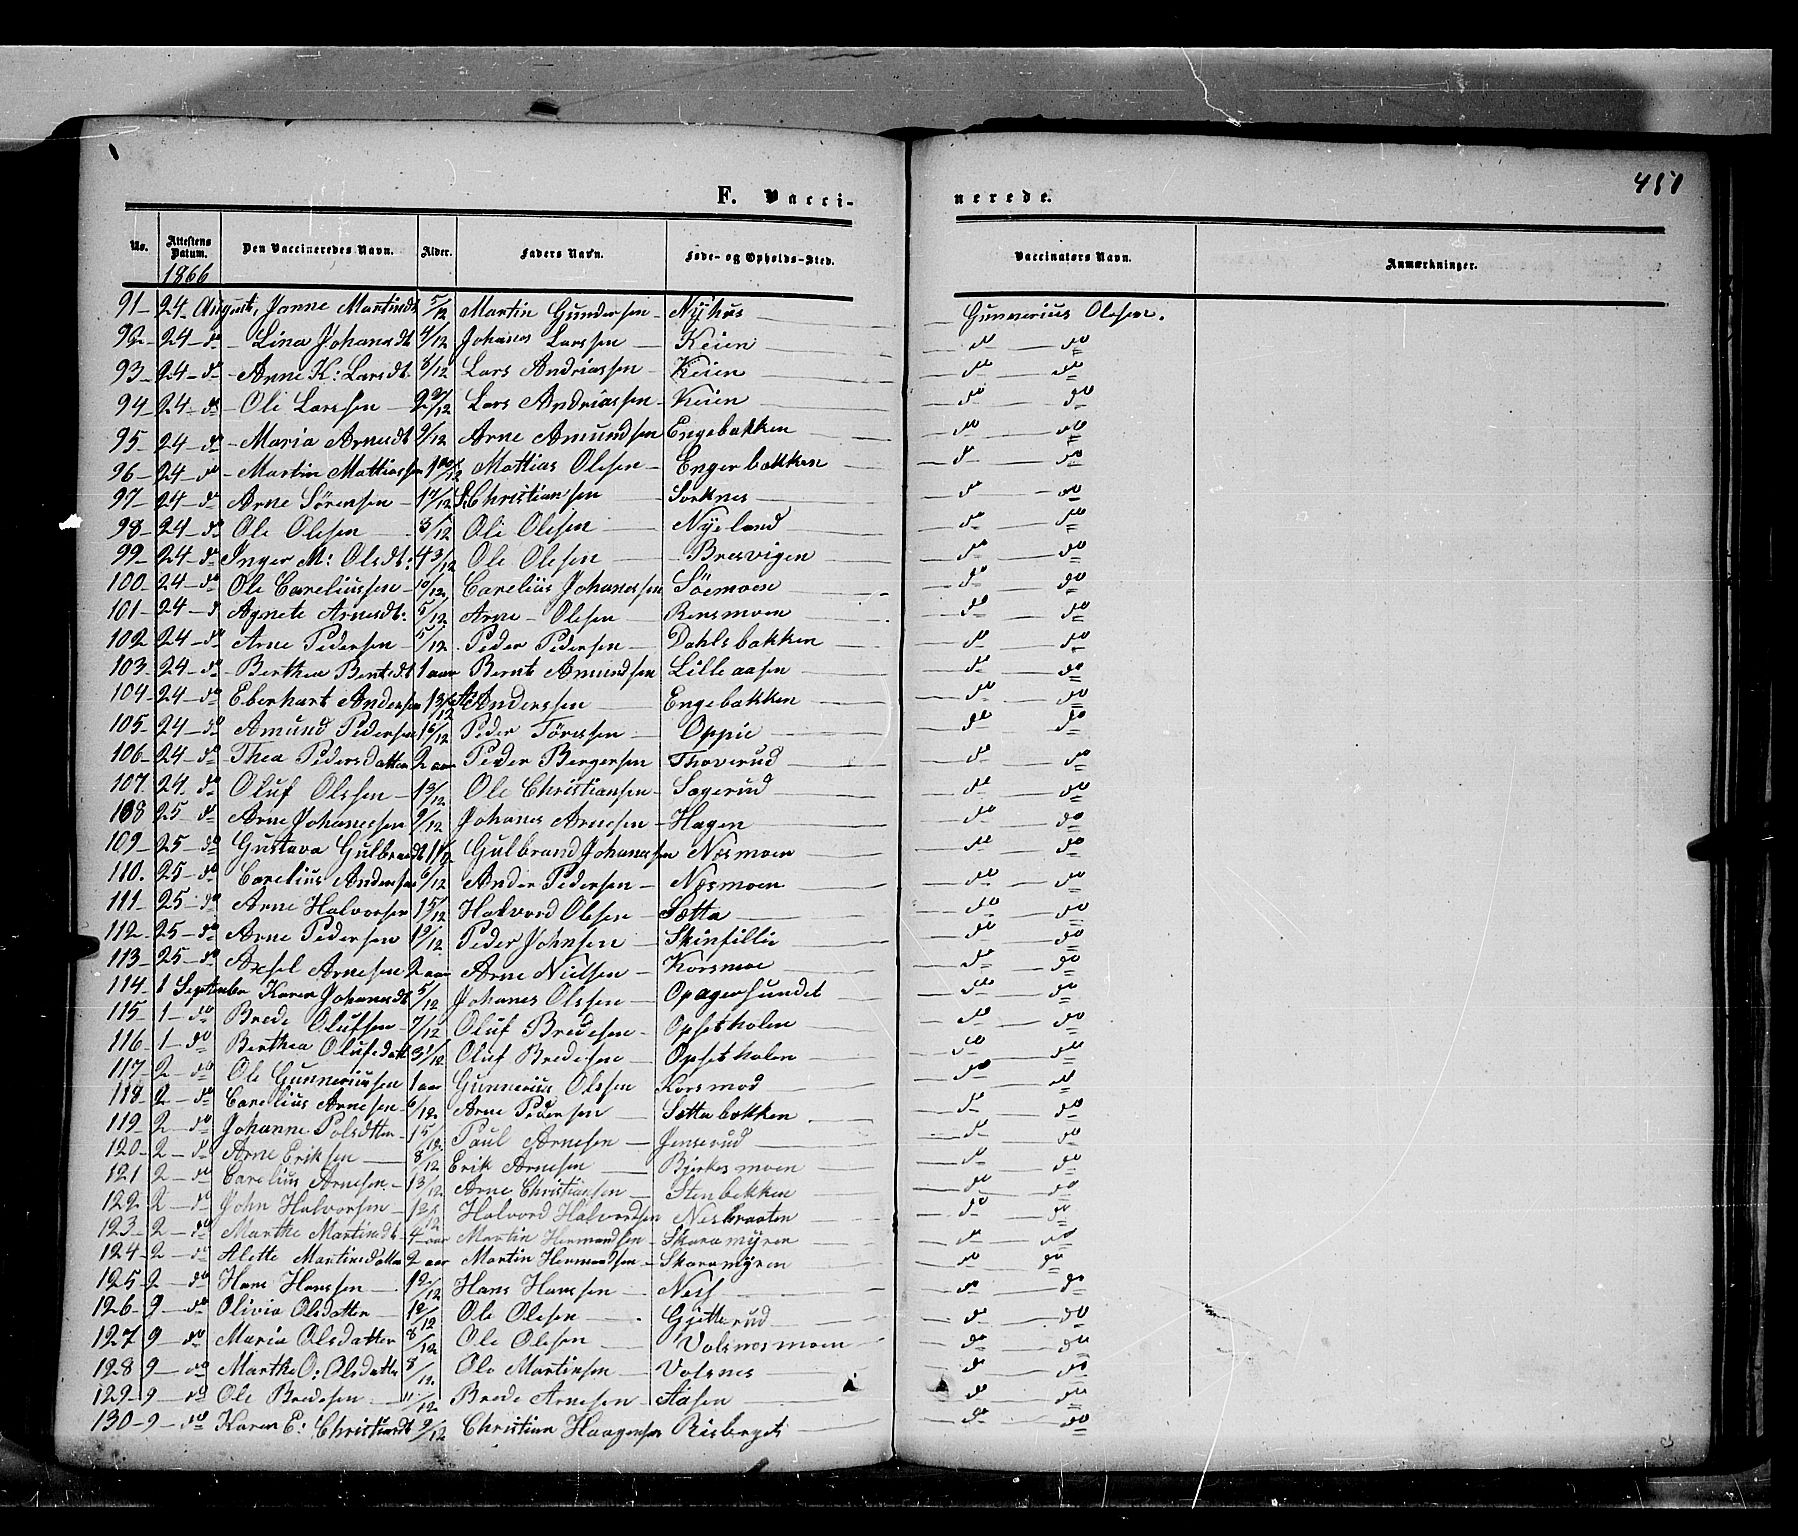 451
F. Vacci-
nerede.
No. Attestens Datum. Den Vaccineredes Navn. Alder. Faders Navn. Føde- og Opholds-Sted. Vaccinators Navn. Anmærkninger.
1866
91 - 24 August, Janne Martinsdt 5/12 Martin Gundersen - Nyhus Gunnerius Olesen.
92 - 24 - do - Lina Johansdt 4/12 Johanes Larssen - Keien do do
93 - 24 - do - Arne K: Larsdt. 8/12 Lars Andriassen - Keien do do
94 - 24 - do - Ole Larssen - Lars Andriassen - Keien do do
95 - 24 - do - Maria Arnesdt 9/12 Arne Amundsen Engebakken do do
96 - 24 - do - Martin Mattiassen Mattias Olesen - Engerbakken do do
97 - 24 - do Arne Sørensen - S. Christiansen - Sorknes do do
98 - 24 - do Ole Olesen 3/12 Ole Olesen - Nyeland do do
99 - 24 - do Inger M: Olsdt: 4 3/12 Ole Olesen - Bresvigen do do
100 - 24 - do Ole Careliussen - 10/12 Carelius Johanessen Söemoen do do
101 - 24 - d Agnete Arnesdt: 5/12 Arne - Olesen - Rensmoen do do
102 - 24 - do Arne Pedersen - 5/12 Peder Pedersen - Dahlsbakken do do
103 - 24 - do Berthea Berntsdt 1 aar Bernt Amundsen Lilleaasen do do
104 - 24 - do Eberhart Andersen A. Anderssen - Engebakken do do
105 - 24 - do Amund Pedersen Peder Törresen - Oppie do do
106 - 24 - do Thea Pedersdatter 2 aar Peder Bergersen Thoverud do do
107 - 24 - do Oluf Olssen - Ole Christiansen - Sagerud do do
108 - 25 - do Arne Johanessen 9/12 Johanes Arnesen - Hagen do do
109 - 25 - do Gustava Gulbrandt Gulbrand Johanessen Nesmoen do do
110. 25 - do Carelius Andersen 6/12 Ander Pedersen - Nesmoen do do
111 - 25 - do Arne Halvorsen 1 5/12 Halvord Olesen - Sætta do do
112 - 25 - do Arne Pedersen Peder Johnsen - Skinfillie do do
113 - 25 - do Axsel Arnesen 2 aar Arne Nielsen - Korsmoe do do
114 - 1 September Karen Johanesdt 5/12 Johanes Olssen - Opagersundet do do
115 - 1 - do Brede Olufsen 7/12 Oluf Bredesen - Opsetholen do do
116 - 1 - do Berthea Olufsdatt Oluf Bredesen - Opsetholen do do
117 - 2 - do Ole Gunneriussen 1 aar Gunnerius Olssen Korsmod do do
118 - 2 - do Carelius Arnesen - 6/12 Arne Pedersen - Sættabakken do do
119 - 2 - do Johanne Polsdtter Paul Arnesen - Jenserud do do
120 - 2 - do Arne Eriksen 8/12 Erik Arnesen - Bjerkesmoen do do
121 2 - do Carelius Arnesen - Arne Christiansen - Stenbekken do do
122 - 2 - do John Halvorsen - Halvord Halvordsen Nesbraaten do do
123 - 2 - do Marthe Martinsdt 4 aar Martin Hermandsen - Skaramyren do do
124 - 2 - do Alette Martinsdatter 2 aar Martin Hermandsen - Skaramyren do do
125 - 2 - do Hans Hanssen - Hans Hanssen - Ness do do
126 - 9 - do Olivia Olsdatter 10/12 Ole Olesen - Gjetterud do do
127 - 9 - do Maria Olsdatter 8/12 Ole Olesen - Volsnesmoen do do
128 9 - do Marthe O: Olsdatter 8/12. Ole Martinsen - Volsnes do do
129 - 9 - do Ole Bredesen - 11/12 Brede Arnesen - Aasen do do
130 - 9 - do Karen E: Christiansdt 9/12 Christian Haagensen Risberget do do